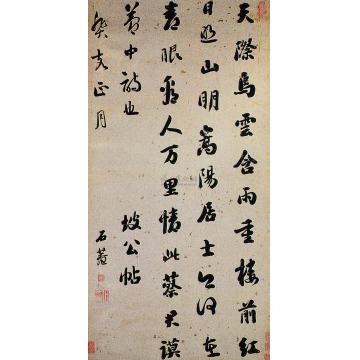 天際烏雲含雨重樓前紅
日照山明嵩陽居士今何在
青眼看人万里情此蔡君謨
夢中詩也 坡公帖
癸亥正月 石菴